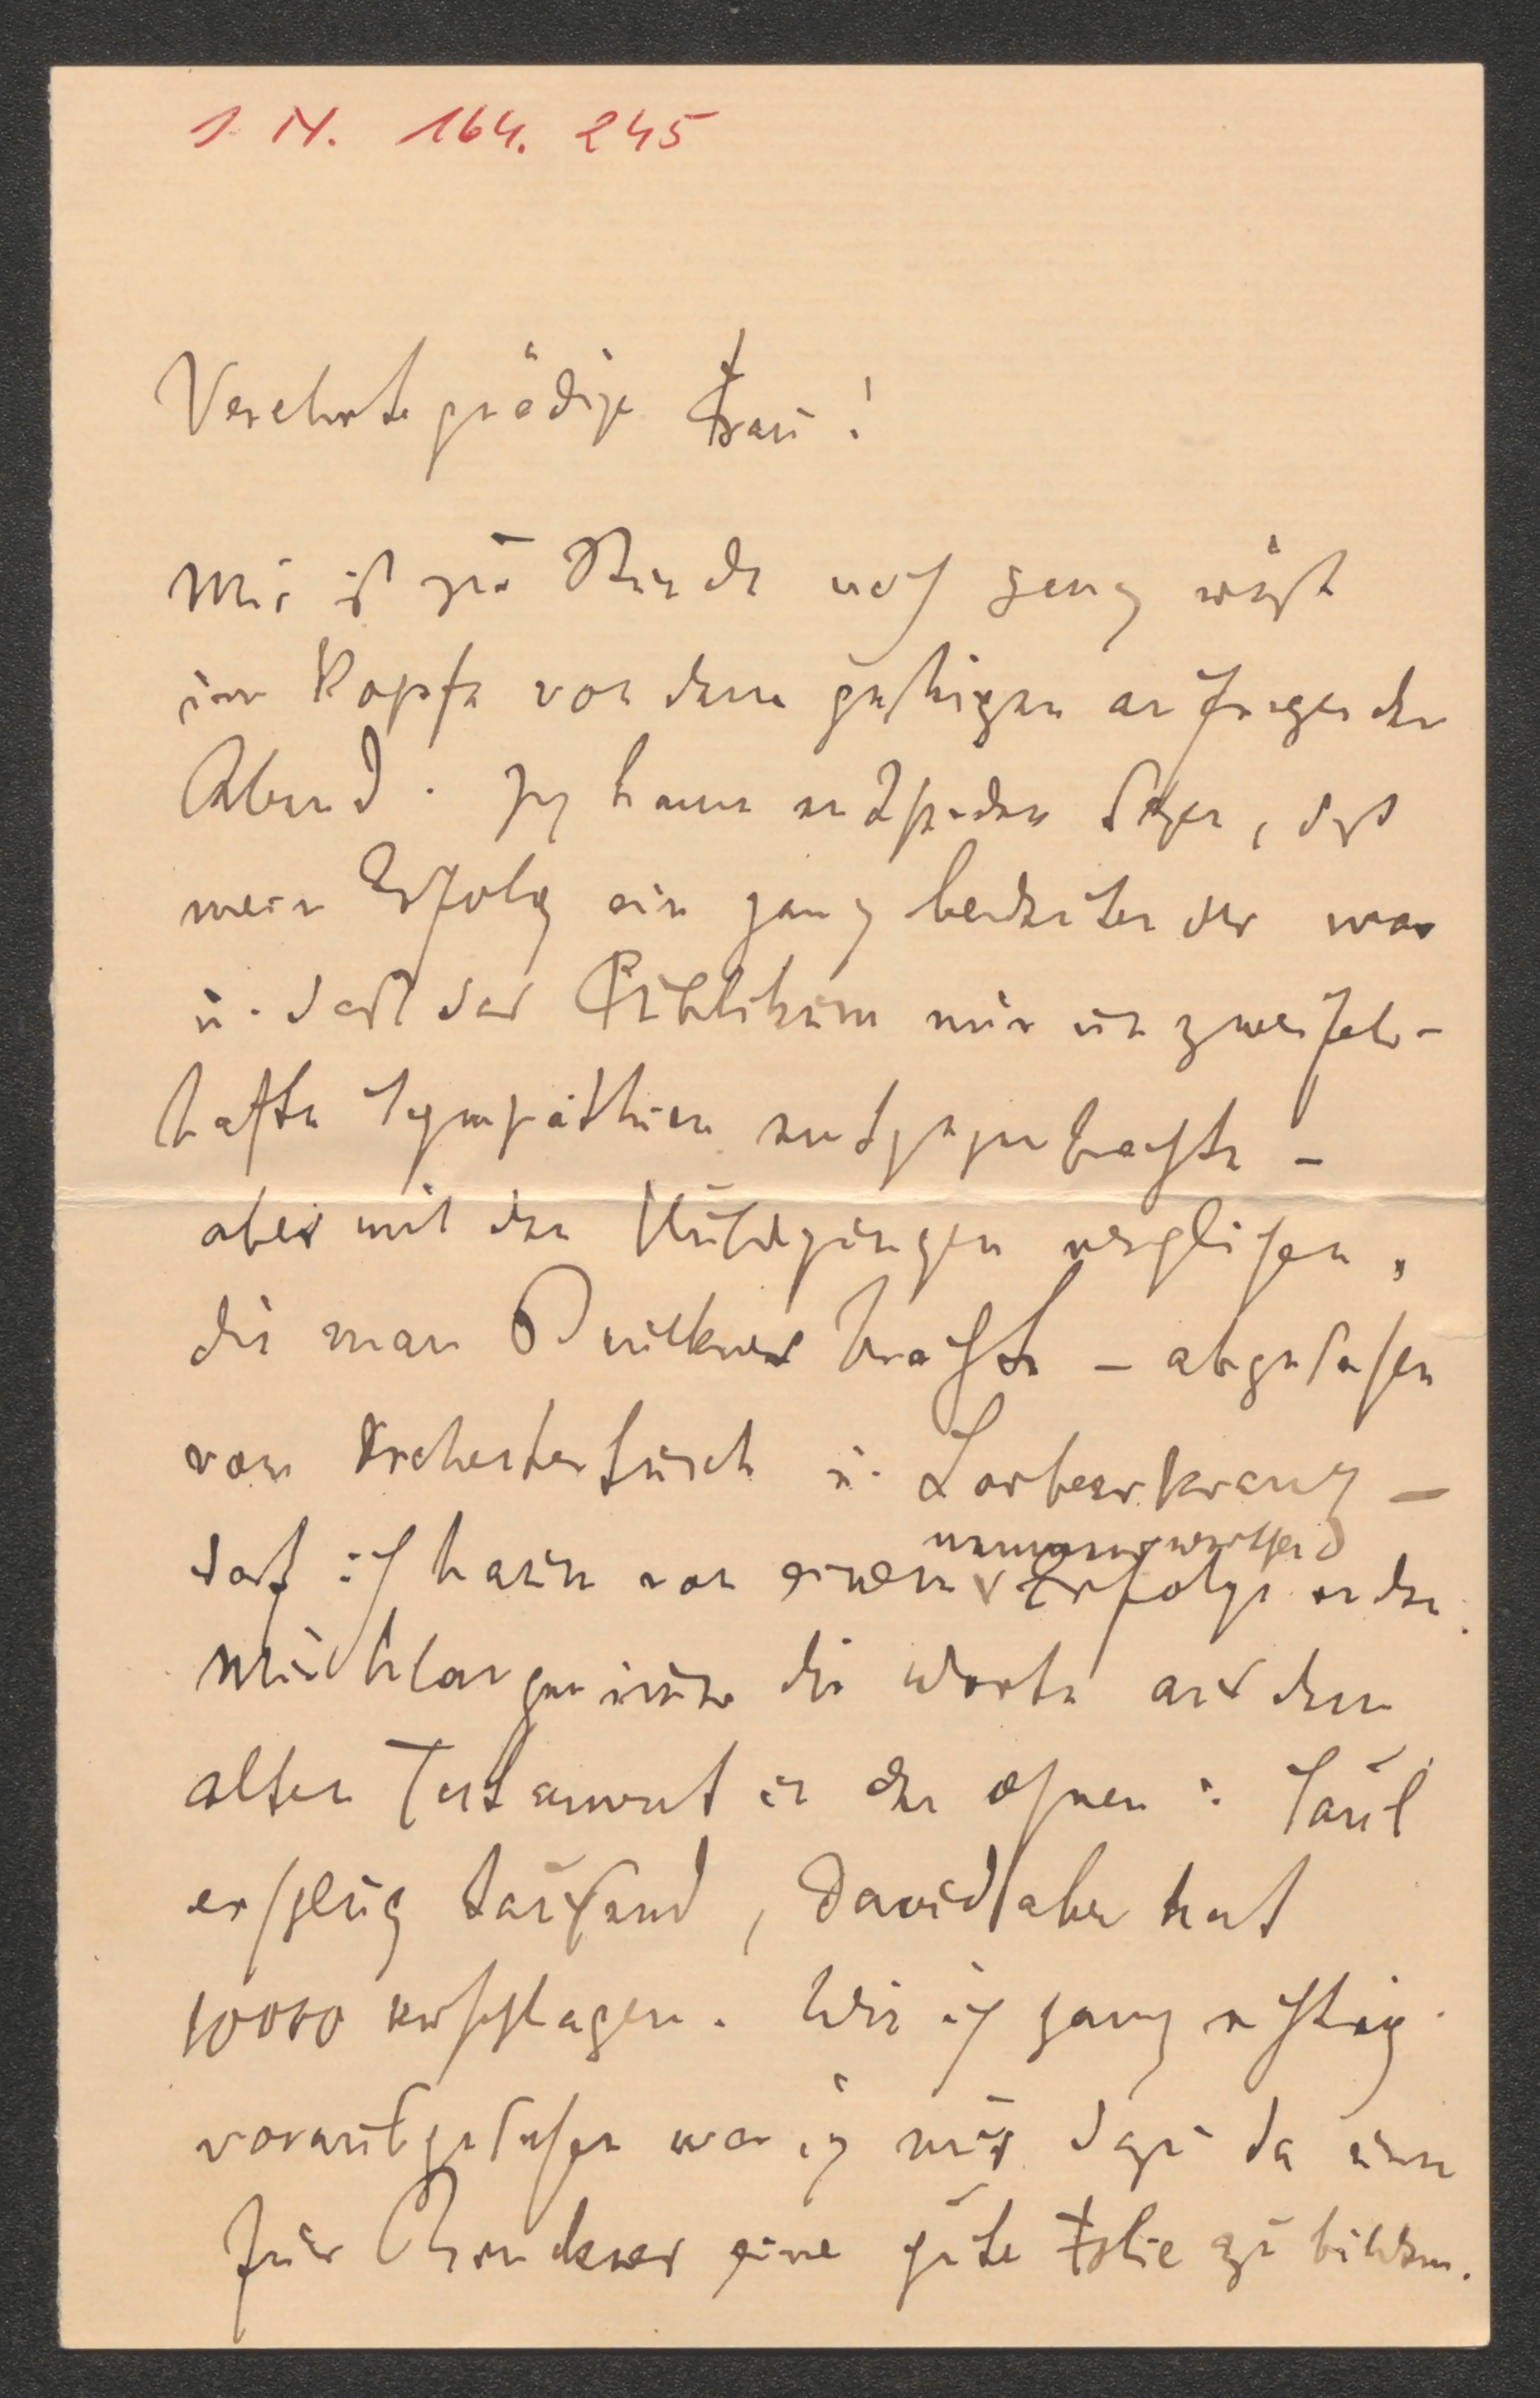 I. N. 164.245
Verehrte gnädige Frau!
Mir ist zur Stunde noch ganz wüst
im Kopfe von dem gestrigen aufregenden
Abend. Ich kann entschieden sagen, daß
mein Erfolg ein ganz bedeutender war
u. daß das Publikum mir unzweifel-
hafte Sympathien entgegenbrachte –
aber mit den Huldigungen verglichen,
die man Bruckner brachte – abgesehen
vom Orchestertusch u. Lorbeerkranz –
daß ich kaum von einem nennenswerthen Erfolge reden
Mich klangen immer die Worte aus dem
alten Testament in den Ohren: Saul
erschlug tausend, David aber hat
10000 erschlagen. Wie ich ganz richtig
vorausgesehen war ich nur dazu da um
für Bruckner eine gute Folie zu bilden.